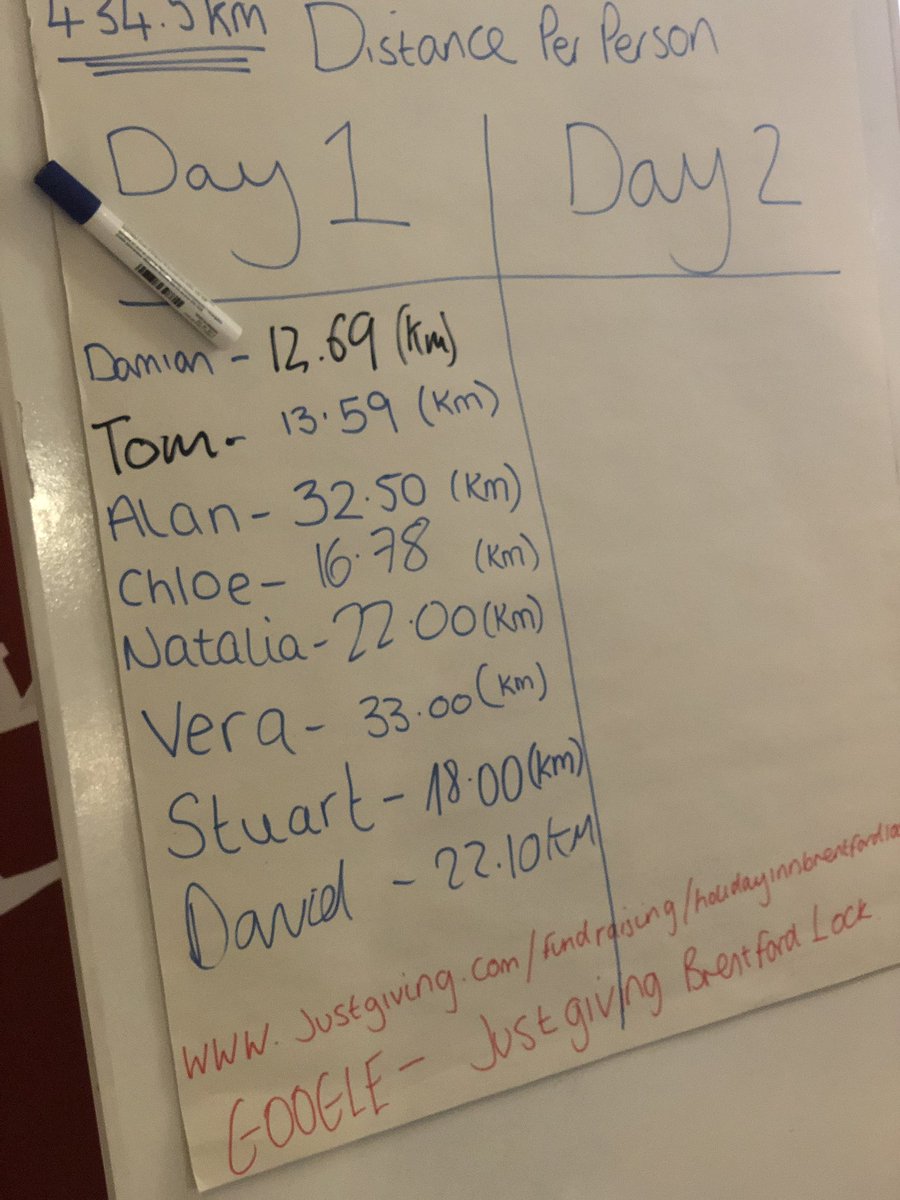 434.5km Distance Per Person
Day 1 Day 2
Damian - 12.69 (Km)
Tom - 13.59 (Km)
Alan - 32.50 (Km)
Chloe - 16.78 (Km)
Natalia - 22.00 (Km)
Vera - 33.00 (Km)
Stuart - 18.00 (km)
David - 22.10 KM
www.Justgiving.com/fundraising/holidayinnbrentfordlo
GOOGLE - Justgiving Brentford Lock